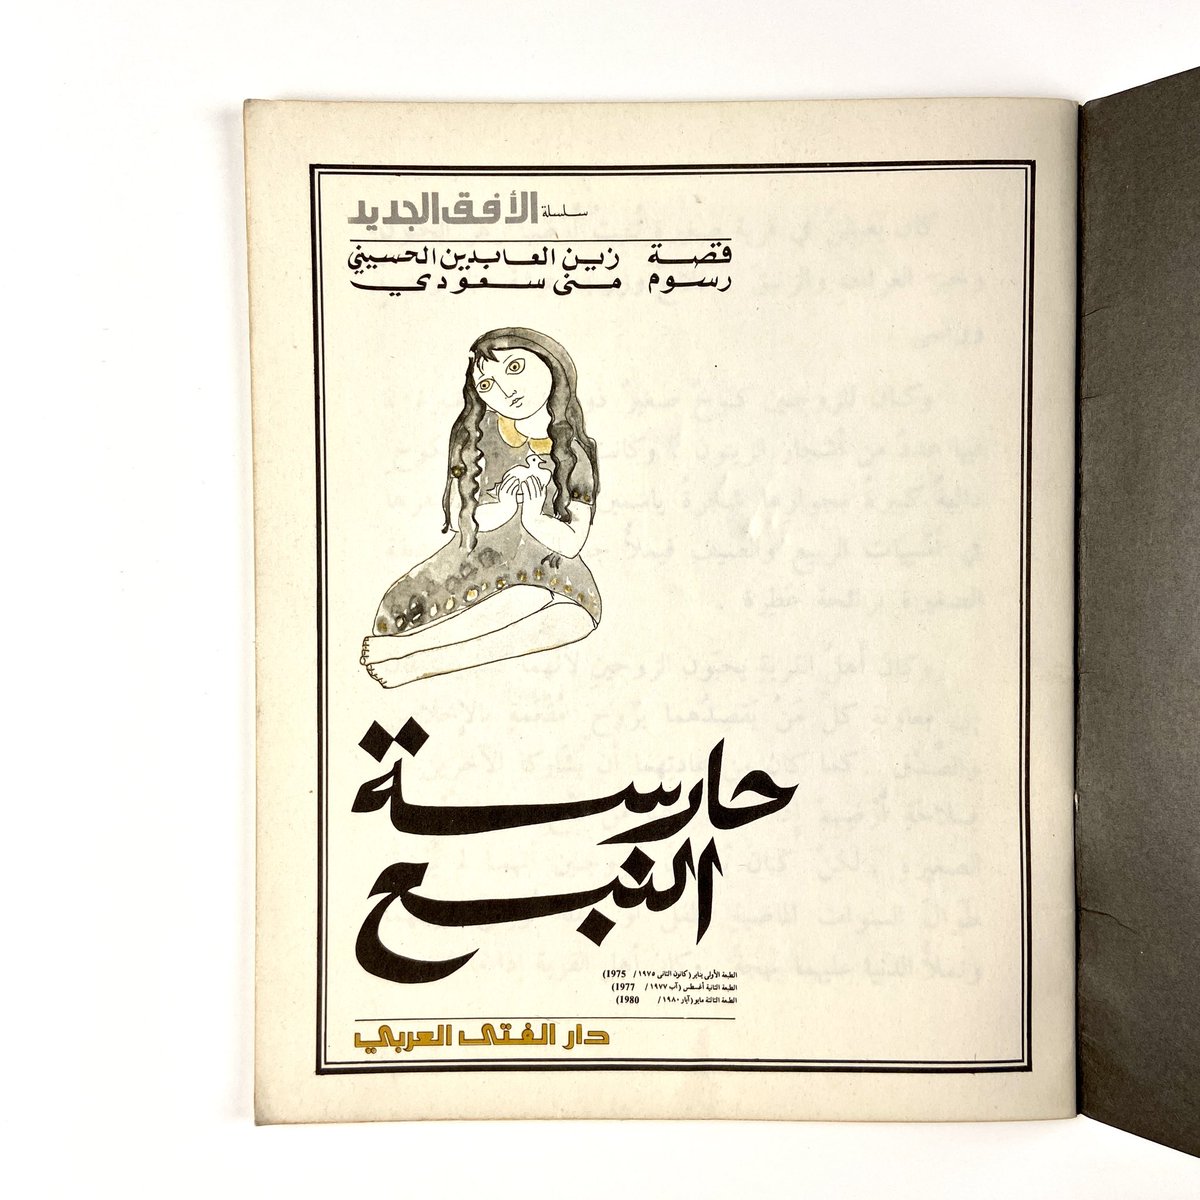 سلسلة الأفق الجديد
قصة زين العابدين الحسيني
رسوم منى سعودي
حارسة
النبع
الطبعة الأولى يناير (كانون الثاني ١٩٧٥ / 1975)
الطبعة الثانية أغسطس (آب ١٩٧٧ / 1977)
الطبعة الثالثة مايو (أيار ١٩٨٠ / 1980)
دار الفتى العربي